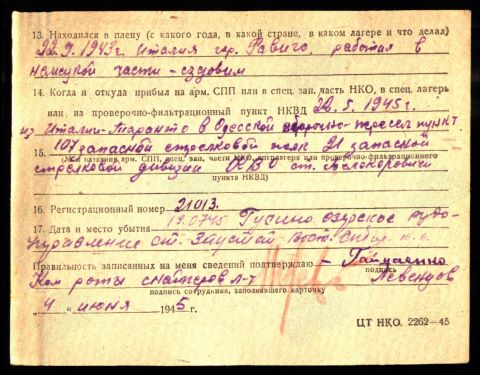 13. Находился в плену (с какого года, в какой стране, в каком лагере и что делал)
22.9.1943г. Италия гор. Равиго, работал в
немецкой части – ездовым
14. Когда и откуда прибыл на арм. СПП или в спец. зап. часть НКО, в спец. лагерь
или на проверочно-фильтрационный пункт НКВД 22.5.1945г.
из Италии – Таранто в Одесской сборочно-пересел пункт
15. 104 запасной стрелковой полк 21 запасной
(Наименование арм. СПП, спец. зап. части НКО, спецлагеря или проверочно-фильтрационного
стрелковой дивизии ОСВО ст.
пункта НКВД)
16. Регистрационный номер 21013.
17. Дата и место убытия 19.0745 Гусино озерское рудо-
управление ст. Загустай, Вост. Сибир.
Правильность записанных на меня сведений подтверждаю –
подпись
Ком роты снайперов л-т Левенцов
подпись сотрудника, заполнявшего карточку
„4" июня 1945 г.
ЦТ НКО. 2262—45